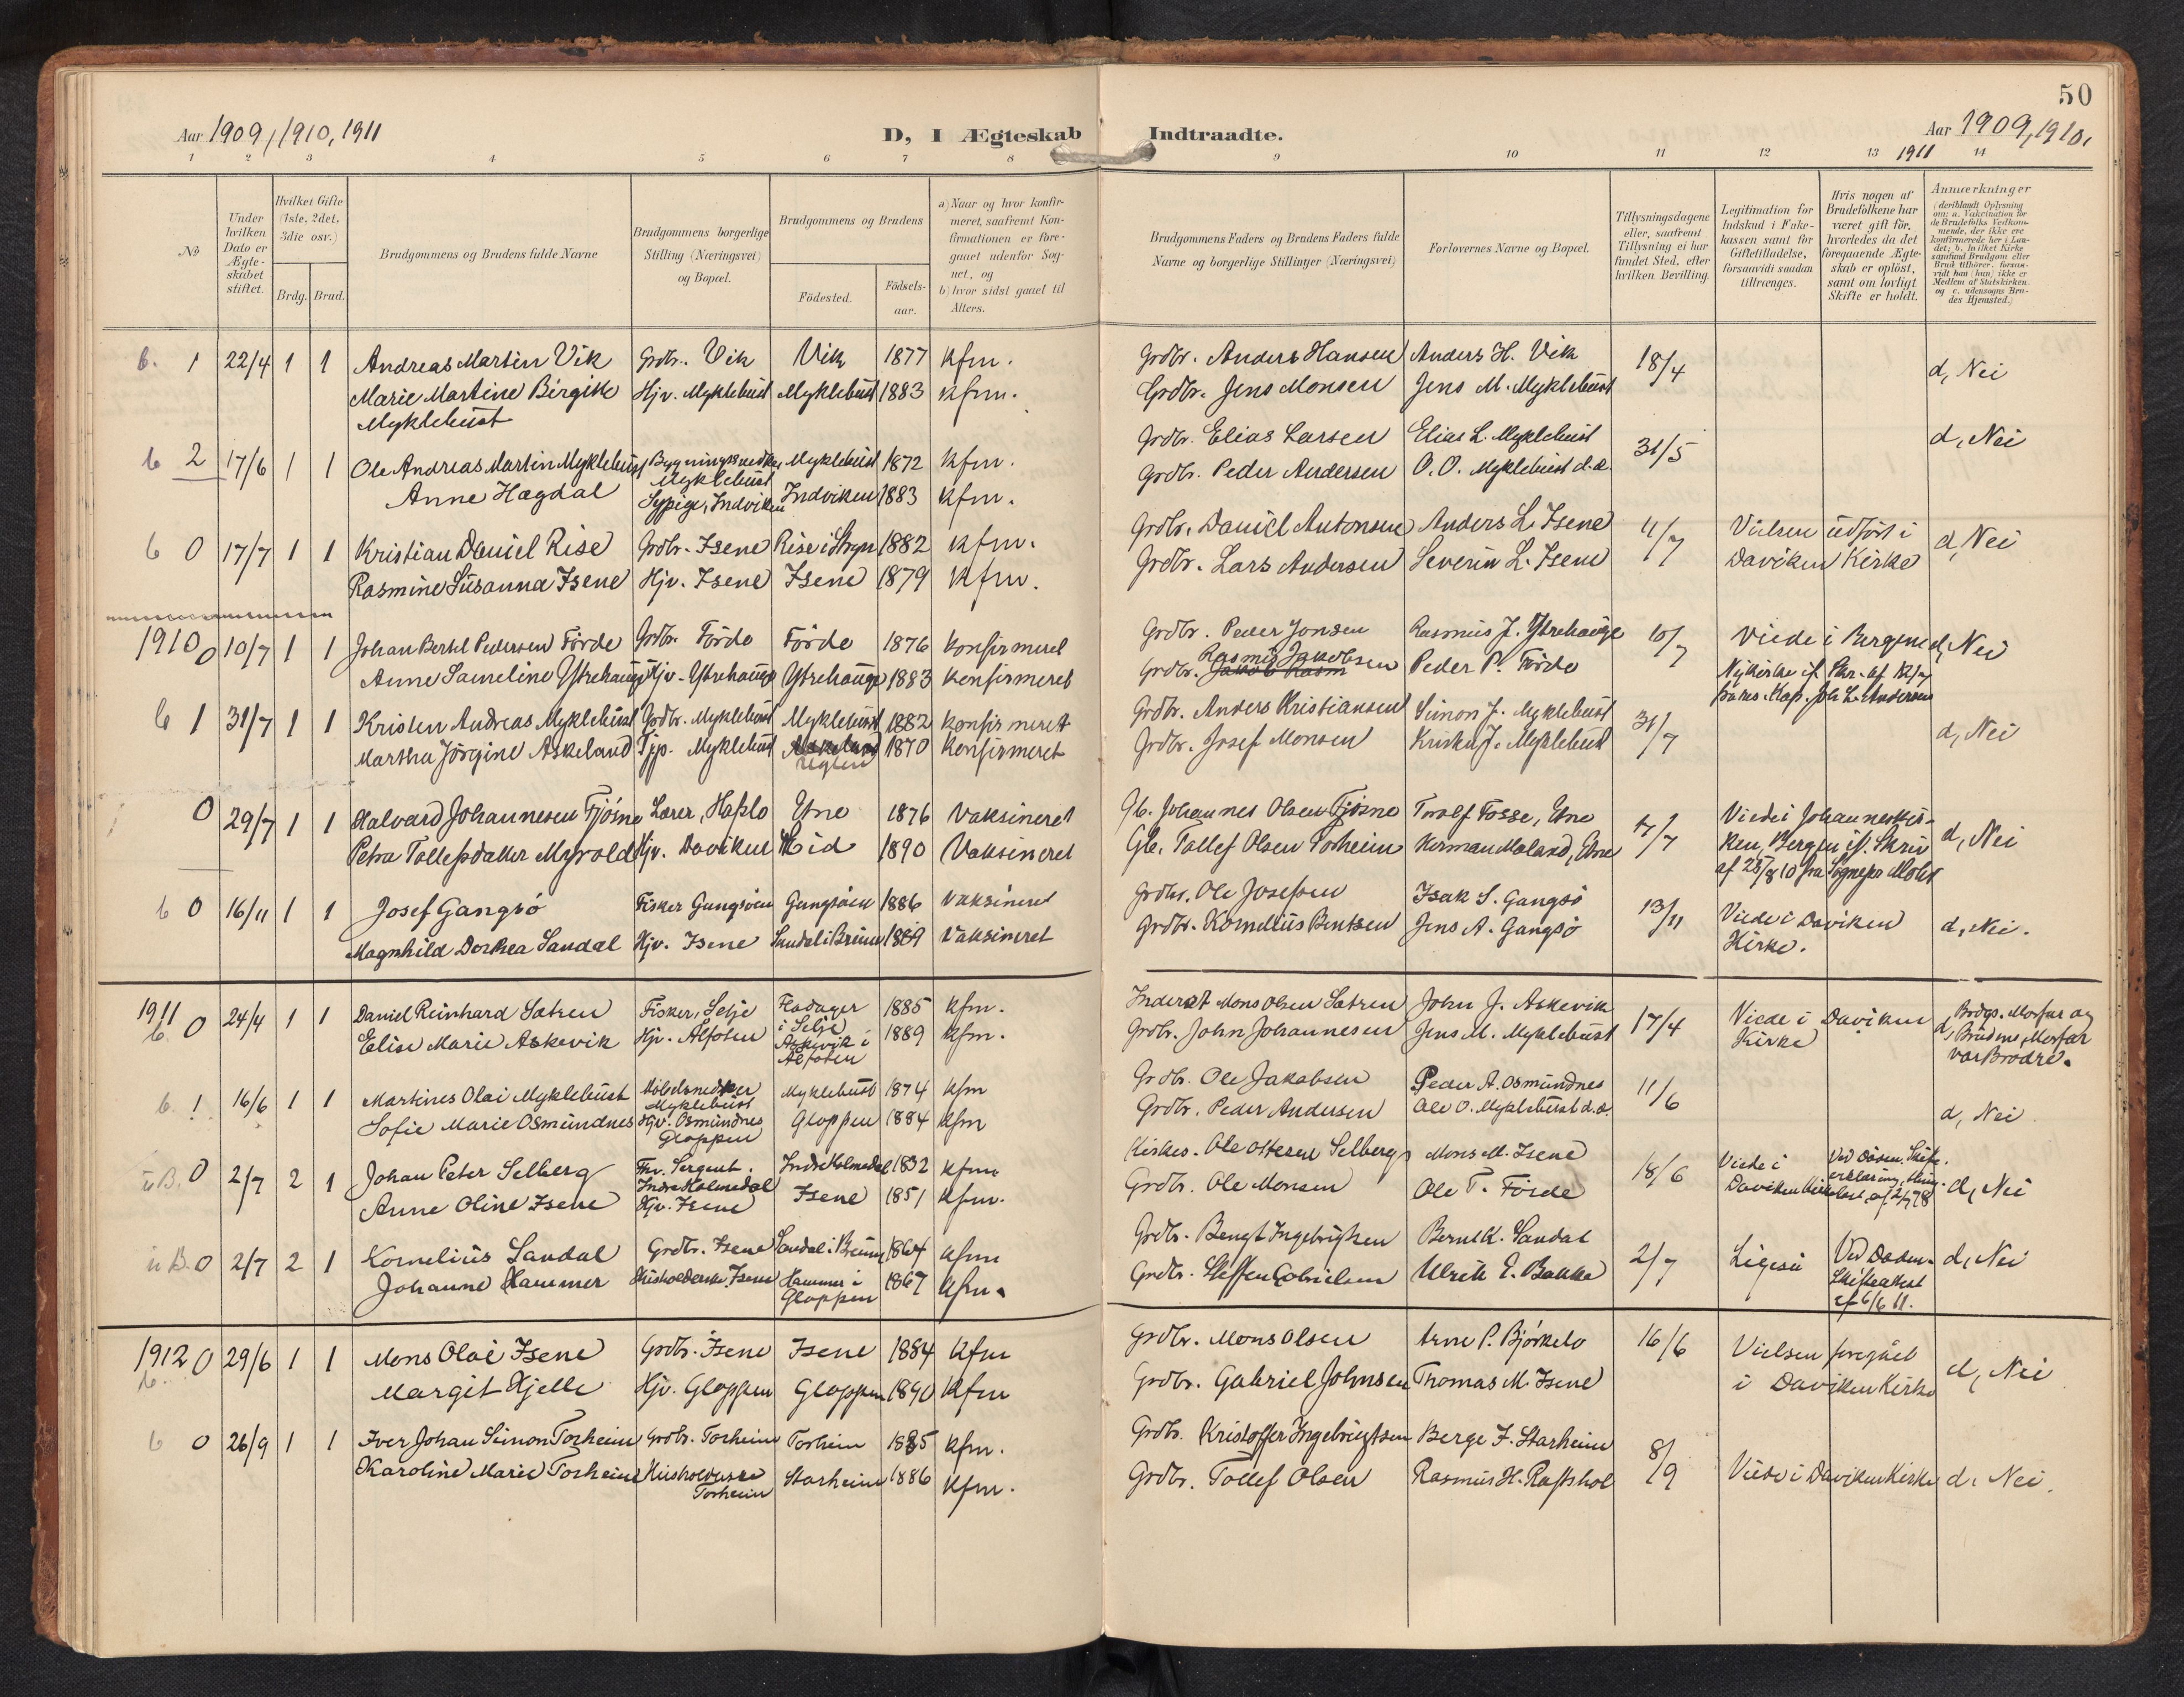 50
Aar 1909, 1910, 1911
D, I Ægteskab Indtraadte.
Aar 1909, 1910,
1911
1 2 3 4 5 6 7 8 9 10 11 12 13 14
№
Under hvilken Dato er Ægteskabet stiftet.
Hvilket Gifte (1ste, 2det, 3die osv.)
Brdg. Brud.
Brudgommens og Brudens fulde Navne
Brudgommens borgerlige Stilling (Næringsvei) og Bopæl.
Brudgommens og Brudens
Födested.
Födselsaar.
a) Naar og hvor konfirmeret, saafremt Konfirmationen er foregaaet udenfor Sognet, og
b) hvor sidst gaaet til Alters.
Brudgommens Faders og Brudens Faders fulde Navne og borgerlige Stillinger (Næringsvei)
Forlovernes Navne og Bopæl.
Tillysningsdagene eller, saafremt Tillysning ei har fundet Sted, efter hvilken Bevilling.
Legitimation for Indskud i Enkekassen samt for Giftetilladelse, forsaavidt saadan tiltrænges.
Hvis nogen af Brudefolkene har været gift för, hvorledes da det foregaaende Ægteskab er oplöst, samt om lovligt Skifte er holdt.
Anmærkninger
(deriblandt Oplysning om: a. Vaksination for de Brudefolks Vedkommende, der ikke ere konfirmerede her i Landet; b. hvilket Kirkesamfund Brudgom eller Brud tilhörer, forsaavidt han (hun) ikke er Medlem af Statskirken, og c. udensogns Brudes Hjemsted.)
b. 1 22/4 1 1 Andreas Martin Vik Grdbr. Vik Vik 1877 kfm. Grdbr. Anders Hansen Anders H. Vik 18/4 d, Nei
Marie Martine Birgitte Hjv. Myklebust Myklebust 1883 kfm. Grdbr. Jens Monsen Jens M. Myklebust
Myklebust
b 2 17/6 1 1 Ole Andreas Martin Myklebust Bygningssnedker Myklebust 1872 kfm. Grdbr. Elias Larsen Elias L. Myklebust 31/5 d, Nei
Myklebust
Anne Hægdal Sypige, Indviken Indviken 1883 kfm. Grdbr. Peder Andersen O. O. Myklebust d.æ.
b 0 17/7 1 1 Kristian Daniel Rise Grdbr. Isene Rise i Stryn 1882 kfm. Grdbr. Daniel Antonsen Anders L. Isene 4/7 Vielsen udfört i d, Nei
Rasmine Susanna Isene Hjv. Isene Isene 1879 kfm. Grdbr. Lars Andersen Severin L. Isene Daviken Kirke
1910 0 10/7 1 1 Johan Bertel Pedersen Förde Grdbr. Förde Förde 1876 konfirmeret Grdbr. Peder Jonsen Rasmus J. Ystrehauge 10/7 Viede i Bergens d, Nei
Anne Sameline Ystrehauge Hjv. Ystrehauge Ystrehauge 1883 konfirmeret Grdbr. Rasmus Jakobsen Peder P. Förde Nykirke if. Skr. af
Joh L. Andersen
b 1 31/7 1 1 Kristen Andreas Myklebust Grdbr. Myklebust Myklebust 1882 konfirmeret Grdbr. Anders Kristiansen Simon J. Myklebust 31/7 d, Nei
Martha Jörgine Askeland Tjp. Myklebust 1870 konfirmeret Grdbr. Josef Monsen Kristen J. Myklebust
0 29/7 1 1 Halvard Johannesen Fjösne Lærer, Haflo Etne 1876 Vaksineret Gb. Johannes Olsen Fjösne Torolf Fosse, Etne 4/7 Viede i Johanneskir-
Petra Tollefsdatter Myrold Hjv. Daviken Eid 1890 Vaksineret Gb. Tollef Olsen Torheim Herman Moland, Etne ken, Bergen if. Skriv d, Nei
af 25/8 10 fra Sognepr
b 0 16/11 1 1 Josef Gangsö Fisker Gangsöen Gangsöen 1886 vaksineret Grdbr. Ole Josefsen Isak S. Gangsö 13/11 Viede i Daviken d, Nei.
Magnhild Dorthea Sandal Hjv. Isene Sandal i Breim 1889 Vaksineret Grdbr. Kornelius Bentsen Jens A. Gangsö Kirke.
1911 0 24/4 1 1 Daniel Reinhard Sætren Fisker, Selje Fladager 1885 kfm. Inderst Mons Olsen Sætren John J. Askevik 17/4 Viede i Daviken Brdgs. Morfar og
b. i Selje
Elise Marie Askevik Hjv. Alfoten Askevik i 1889 kfm. Grdbr. John Johannesen Jens M. Myklebust Kirke d, Brudens Morfar
Alfoten var Brödre.
b. 1 16/6 1 1 Martines Olai Myklebust Möbelsnedker Myklebust 1874 kfm Grdbr. Ole Jakobsen Peder A. Osmundnes 11/6
Myklebust
Sofie Marie Osmundnes Hjv. Osmundnes Gloppen 1884 kfm Grdbr. Peder Andersen Ole O. Myklebust d.æ. d, Nei
Gloppen
u B. 0 2/7 2 1 Johan Peter Selberg Fhv. Sergent. Indre Holmedal 1832 kfm. Kirkes. Ole Ottesen Selberg Mons M. Isene 18/6 Viede i Ved Döden. Skifte.
Indre Holmedal
Anne Oline Isene Hjv. Isene Isene 1851 kfm. Grdbr. Ole Monsen Ole T. Förde Daviken d, Nei
u B. 0 2/7 2 1 Kornelius Sandal Grdbr. Isene Sandal i Breim 1864 kfm Grdbr. Bengt Ingebrigtsen Bernt K. Sandal 2/7 Ligesaa Ved Döden. d, Nei
Johanne Hammer Husholderske, Isene Hammer i 1867 kfm. Grdbr. Steffen Gabrielsen Ulrik E. Bakke Skifteattest
Gloppen af 6/6 11.
1912 0 29/6 1 1 Mons Olai Isene Grdbr. Isene Isene 1884 kfm Grdbr. Mons Olsen Arne P. Björkelo 16/6 Vielsen foregaaet
b. Margit Hjelle Hjv. Gloppen Gloppen 1890 kfm Grdbr. Gabriel Johnsen Thomas M. Isene i Daviken Kirke d, Nei
b 0 26/9 1 1 Iver Johan Simon Torheim Grdbr. Torheim Torheim 1885 kfm. Grdbr. Kristoffer Ingebrigtsen Berge J. Starheim 8/9
Karoline Marie Torheim Starheim 1886 kfm. Grdbr. Tollef Olsen Rasmus H. Viede i Daviken Kirke d. Nei.
Torheim